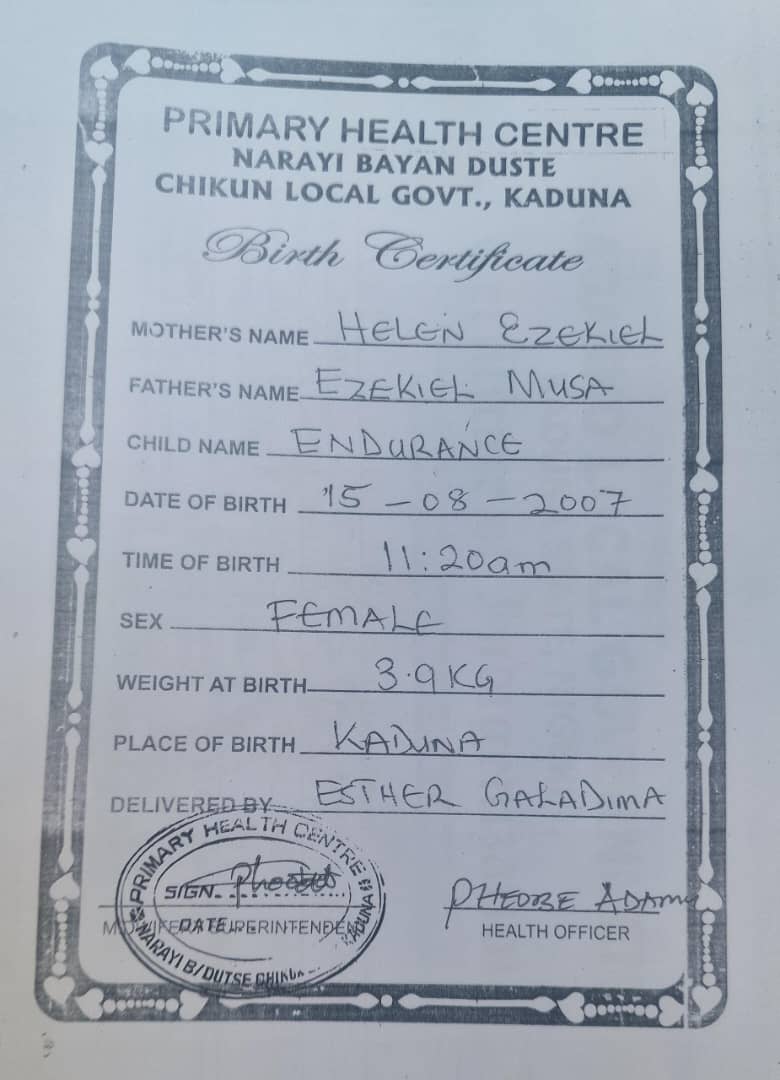 PRIMARY HEALTH CENTRE
NARAYI BAYAN DUSTE
CHIKUN LOCAL GOVT., KADUNA
Birth Certificate
MOTHER'S NAME HELEN EZEKIEL
FATHER'S NAME EZEKIEL MUSA
CHILD NAME ENDURANCE
DATE OF BIRTH 15-08-2007
TIME OF BIRTH 11:20am
SEX FEMALE
WEIGHT AT BIRTH 3.9KG
PLACE OF BIRTH KADUNA
DELIVERED BY ESTHER GALADIMA
PRIMARY HEALTH CENTRE
SIGN.
DATE
NARAYI B/DUTSE CHIKUN
KADUNA
PHEOBE ADAMU
HEALTH OFFICER